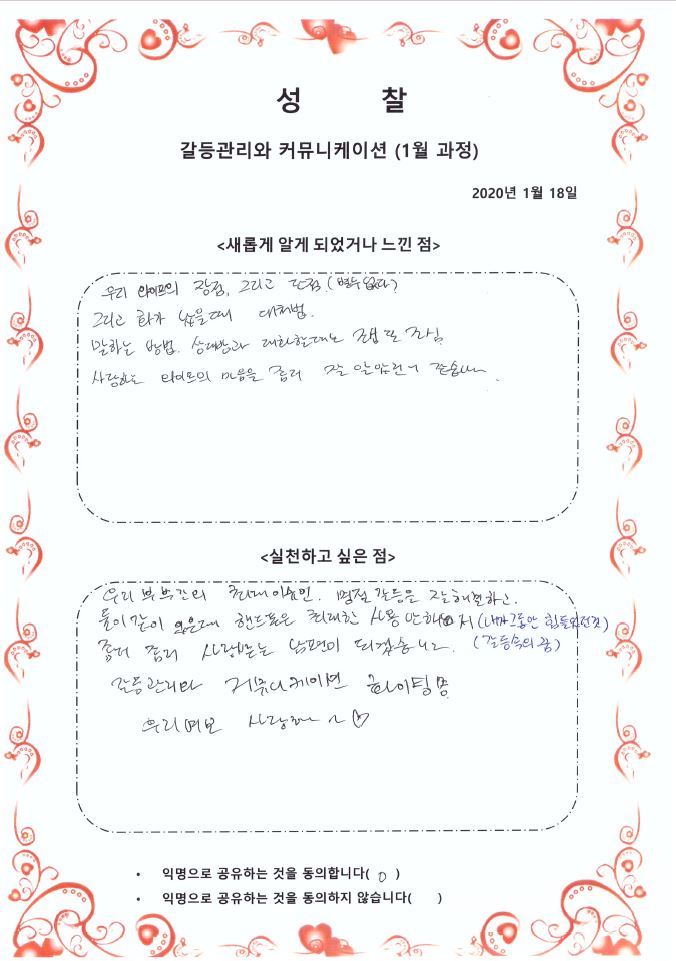 성 찰
갈등관리와 커뮤니케이션 (1월 과정)
2020년 1월 18일
<새롭게 알게 되었거나 느낀 점>
우리 와이프의 장점, 그리고 단점. (별두 없다?)
그리고 화가 났을때 대처법.
말하는 방법. 상대방과 대화할때는 조심 또 조심.
사랑하는 와이프의 마음을 좀더 잘 알았던거 같습니다.
<실천하고 싶은 점>
우리 부부간의 최대이슈인. 명절 갈등을 잘 해결하고.
둘이 같이 있을때 핸드폰은 최대한 사용 안하면서 (내가 그동안 힘들었던것)
좀더 사랑받는 남편이 되겠습니다. (갈등속의 꿈)
갈등관리와 커뮤니케이션 화이팅
우리 여보 사랑해 ~ ♡
• 익명으로 공유하는 것을 동의합니다( 0 )
• 익명으로 공유하는 것을 동의하지 않습니다( )